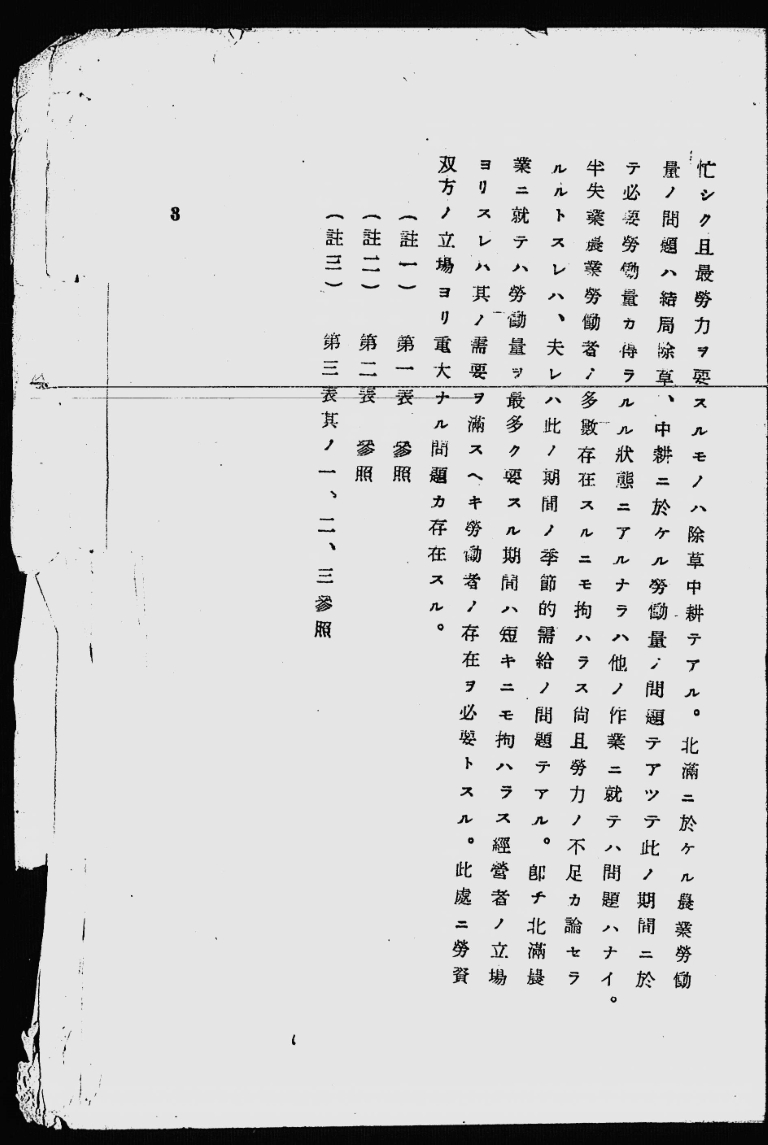 忙シク且最勞力ヲ要スルモノハ除草中耕テアル。北滿ニ於ケル農業勞働
量ノ問題ハ結局除草、中耕ニ於ケル勞働量ノ問題テアツテ此ノ期間ニ於
テ必要勞働量カ得ラルル狀態ニアルナラハ他ノ作業ニ就テハ問題ハナイ。
半失業農業勞働者ノ多數存在スルニモ拘ハラス尙且勞力ノ不足カ論セラ
ルルトスレハ、夫レハ此ノ期間ノ季節的需給ノ問題テアル。卽チ北滿農
業ニ就テハ勞働量ヲ最多ク要スル期間ハ短キニモ拘ハラス經營者ノ立場
ヨリスレハ其ノ需要ヲ滿スヘキ勞働者ノ存在ヲ必要トスル。此處ニ勞資
双方ノ立場ヨリ重大ナル問題カ存在スル。
(註一) 第一表 參照
(註二) 第二表 參照
(註三) 第三表其ノ一、二、三參照
3